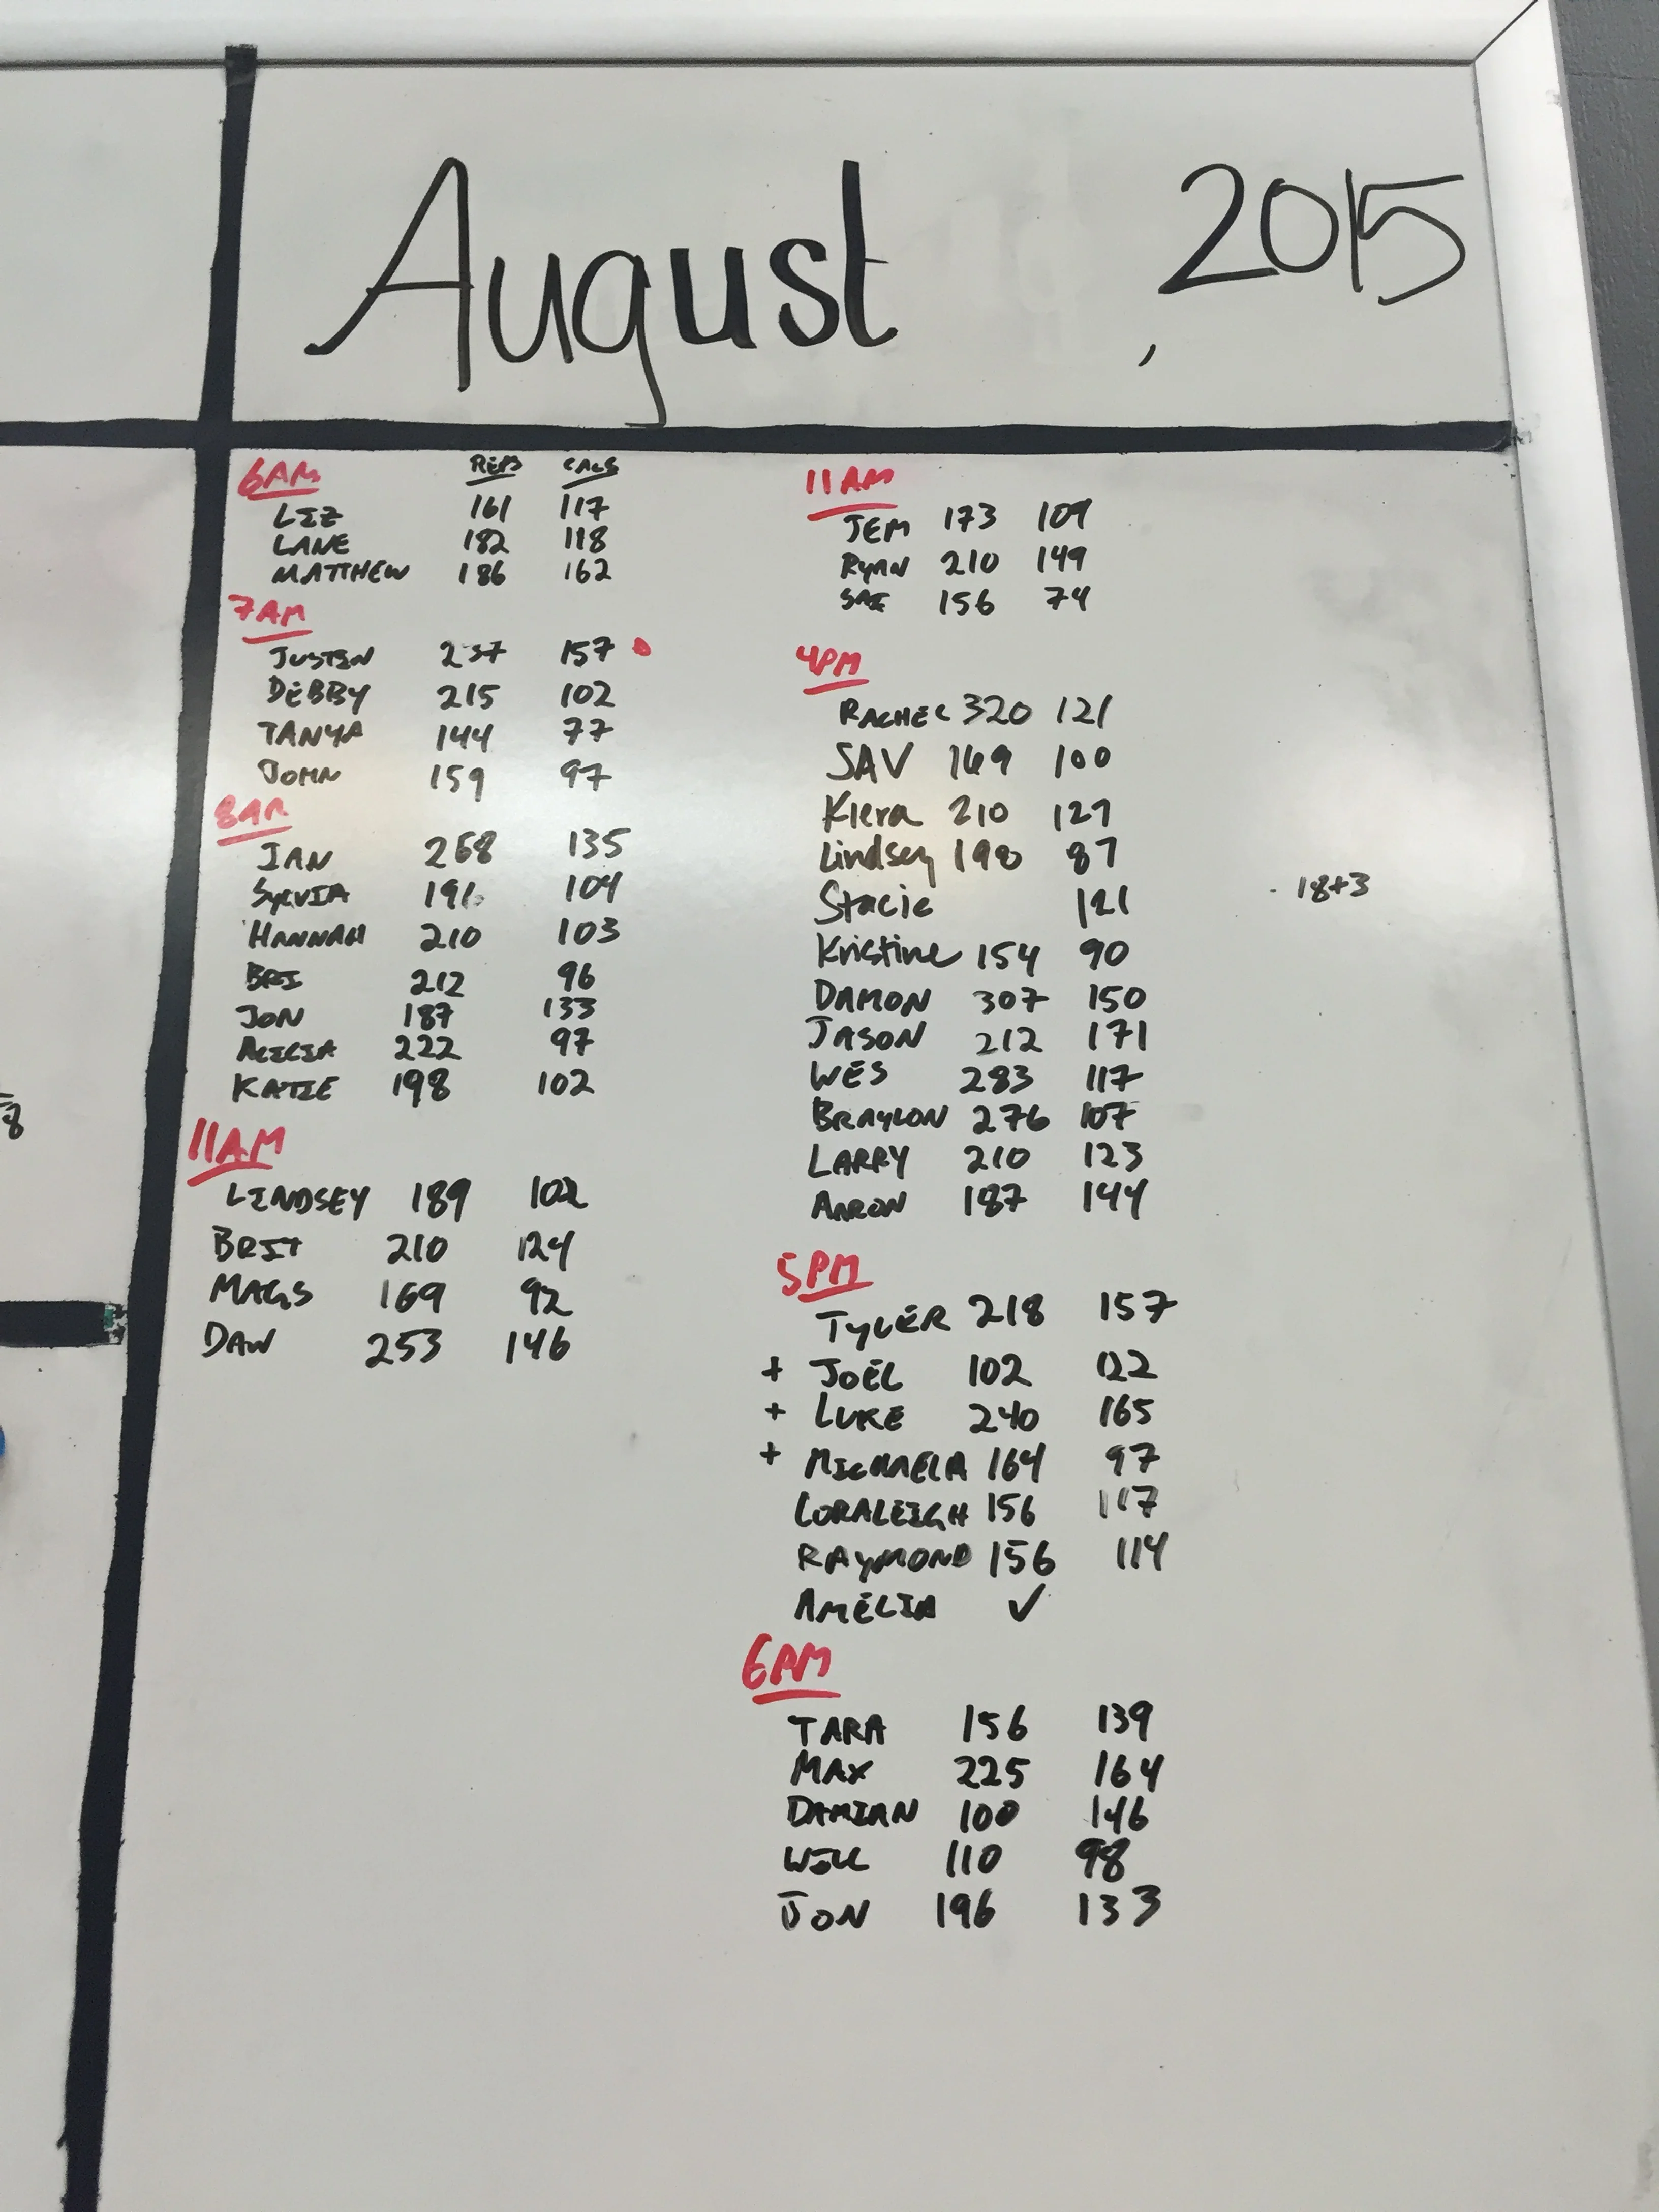 August, 2015
6AM REPS CALS
LIZ 161 117
LANE 182 118
MATTHEW 186 162
7AM
JUSTIN 237 157
DEBBY 215 102
TANYA 144 77
JOHN 159 97
8AM
IAN 268 135
SYLVIA 196 104
HANNAH 210 103
BRI 212 96
JON 187 133
ALICIA 222 97
KATIE 198 102
11AM
LINDSEY 189 102
BRIT 210 124
MAGS 169 92
DAN 253 146
11AM
JEM 173 109
RYAN 210 149
156 74
4PM
RACHEL 320 121
SAV 169 100
Kiera 210 127
Lindsey 190 87
Stacie 121 18+3
Kristine 154 90
DAMON 307 150
JASON 212 171
WES 283 117
BRAYLON 276 107
LARRY 210 123
AARON 187 144
5PM
TYLER 218 157
+ JOEL 102 122
+ LUKE 240 165
+ MICHAELA 164 97
LORALEIGH 156 117
RAYMOND 156 114
AMELIA ✓
6AM
TARA 156 139
MAX 225 164
DAMIAN 100 146
WILL 110 98
JON 196 133